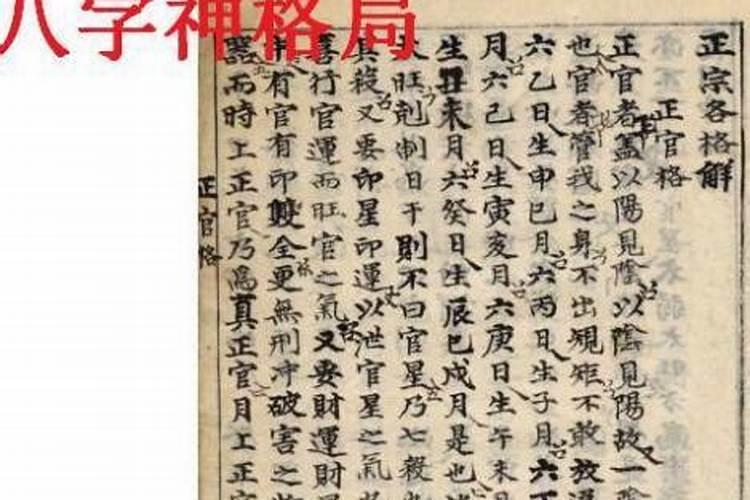 八字神格局
正宗各格解
正官格
正官者蓋以陽見陰以陰見陽故一
也官者管我之身不出規矩不敢放
六乙日生申巳月六丙日生子月六
月六己日生寅亥月六庚日生午未
生丑未月六癸日生辰巳戌月是也
旺剋制日干則不曰官星乃七殺
其殺又要印星印運以泄官星之氣
行官運而旺官之氣又要財運財
有官有印雙全更無刑冲破害之
而時上正官乃為真正官月上正
正官格